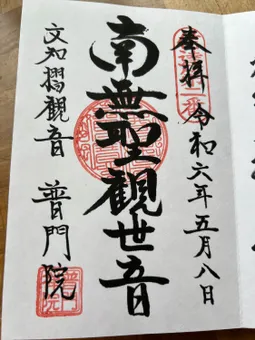 奉拝 令和六年五月八日
南無聖観世音
文知摺観音 普門院